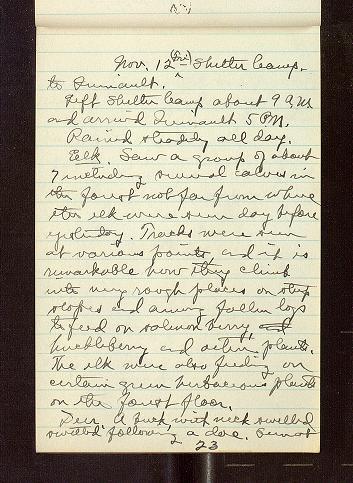 Nov. 12 (Fri) Shelter Camp.
to Quinault.
Left Shelter Camp about 9 A.M.
and arrived Quinault 5 P.M.
Rained steadily all day.
Elk. Saw a group of about
7 including several calves in
the forest not far from where
the elk were seen day before
yesterday. Tracks were seen
at various points, and it is
remarkable how they climb
into very rough places on steep
slopes and among fallen logs
to feed on salmon berry, and
huckleberry and other plants.
The elk were also feeding on
certain green herbaceous plants
on the forest floor.
Deer. A buck with neck swelled
swelled following a doe.
23